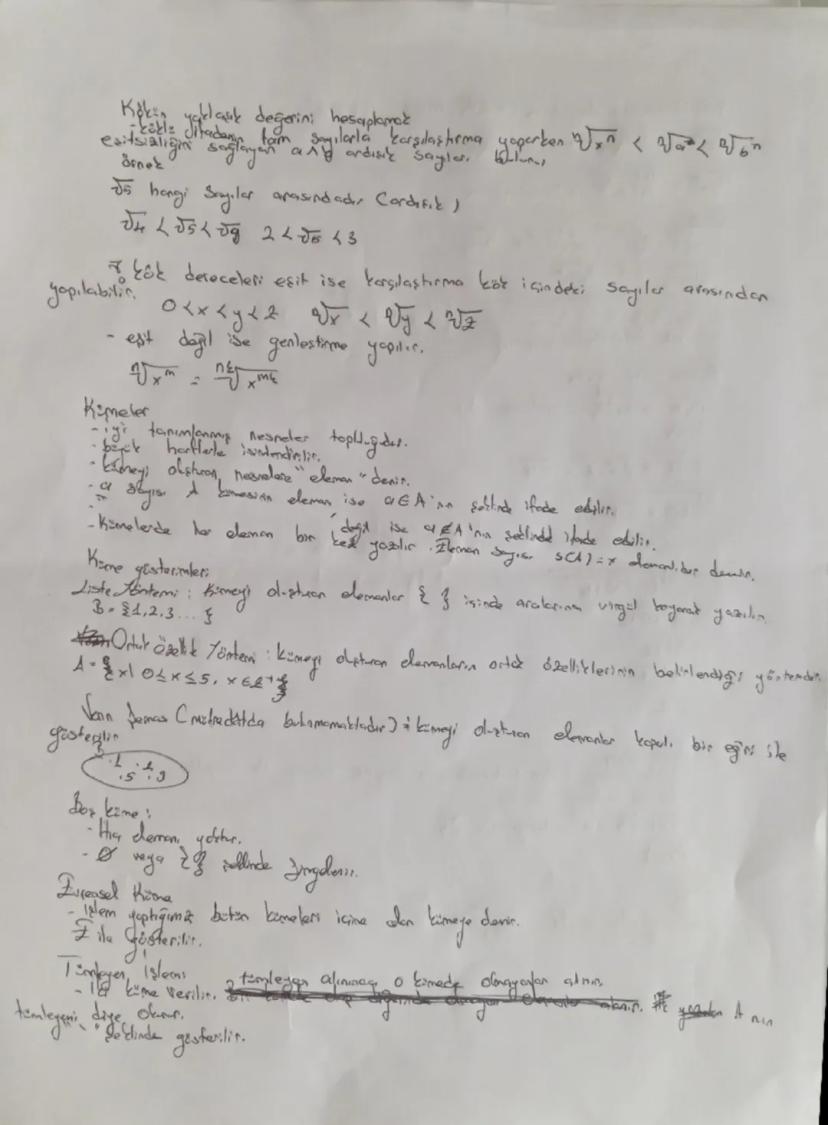 Kökün yaklaşık değerini hesaplamak
- köklü ifadenin tam sayılarla karşılaştırma yaparken ⁿ√xⁿ < ⁿ√a < ⁿ√bⁿ
eşitsizliğini sağlayan ardışık sayılar bulunur
örnek
√5 hangi sayılar arasındadır (ardışık)
√4 < √5 < √9 2 < √5 < 3
kök dereceleri eşit ise karşılaştırma kök içindeki sayılar arasından
yapılabilir. 0 < x < y < z ⁿ√x < ⁿ√y < ⁿ√z
- eşit değil ise genleştirme yapılır.
ⁿ√x^m = ^nk√x^mk
Kümeler
- iyi tanımlanmış nesneler topluluğudur.
- büyük harflerle isimlendirilir.
- kümeyi oluşturan nesnelere "eleman" denir.
- a sayısı A kümesinin eleman ise a∈A'nın şeklinde ifade edilir.
- " değil ise a∉A'nın şeklinde ifade edilir.
- Kümelerde her eleman bir kez yazılır. Eleman sayısı s(A)=x denir.
Küme gösterimleri
Liste Yöntemi: Kümeyi oluşturan elemanlar { } içinde aralarına virgül koyarak yazılır.
B = {1,2,3...}
Ortak özellik Yöntemi: kümeyi oluşturan elemanların ortak özelliklerinin belirlendiği yöntemdir.
A = {x| 0≤x≤5, x∈Z⁺}
Venn Şeması (müfredatta bulunmamaktadır): kümeyi oluşturan elemanlar kapalı bir eğri ile
gösterilir
.1 .2
.5 .9
Boş küme:
- Hiç elemanı yoktur.
- Ø veya { } şeklinde
Evrensel Küme
- işlem yaptığımız bütün kümeleri içine alan kümeye denir.
E ile Gösterilir.
Tümleyen İşlemi
- İki küme verilir. tümleyen alınınca o kümede olmayanlar alınır.
A nın
tümleyeni diye okunur.
" şeklinde gösterilir.